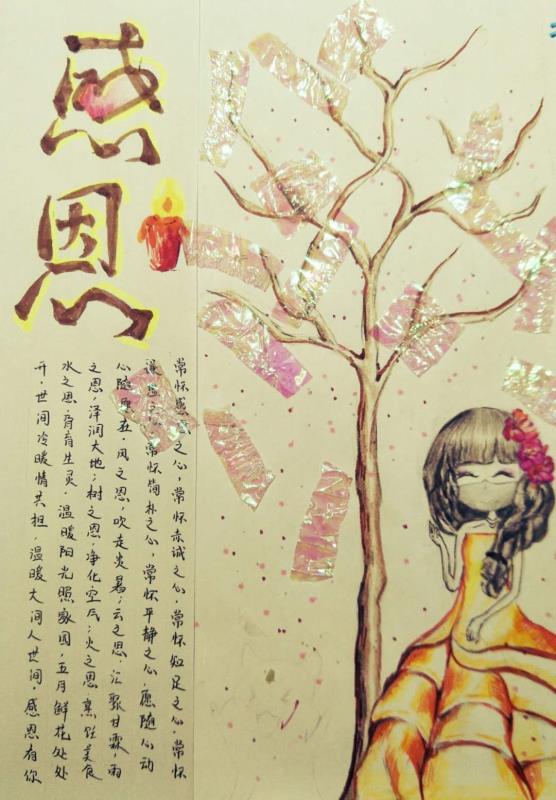 感恩
常怀感恩之心，常怀赤诚之心，常怀知足之心，常怀
之心，常怀简朴之心，常怀平静之心，愿随心动
心随愿。风之恩，吹走炎暑；云之恩，汇聚甘霖，雨
之恩，泽润大地；树之恩，净化空气；火之恩，烹饪美食
水之恩，孕育生灵。温暖阳光照家园，五月鲜花处处
开，世间冷暖情共担，温暖大间人世间，感恩有你